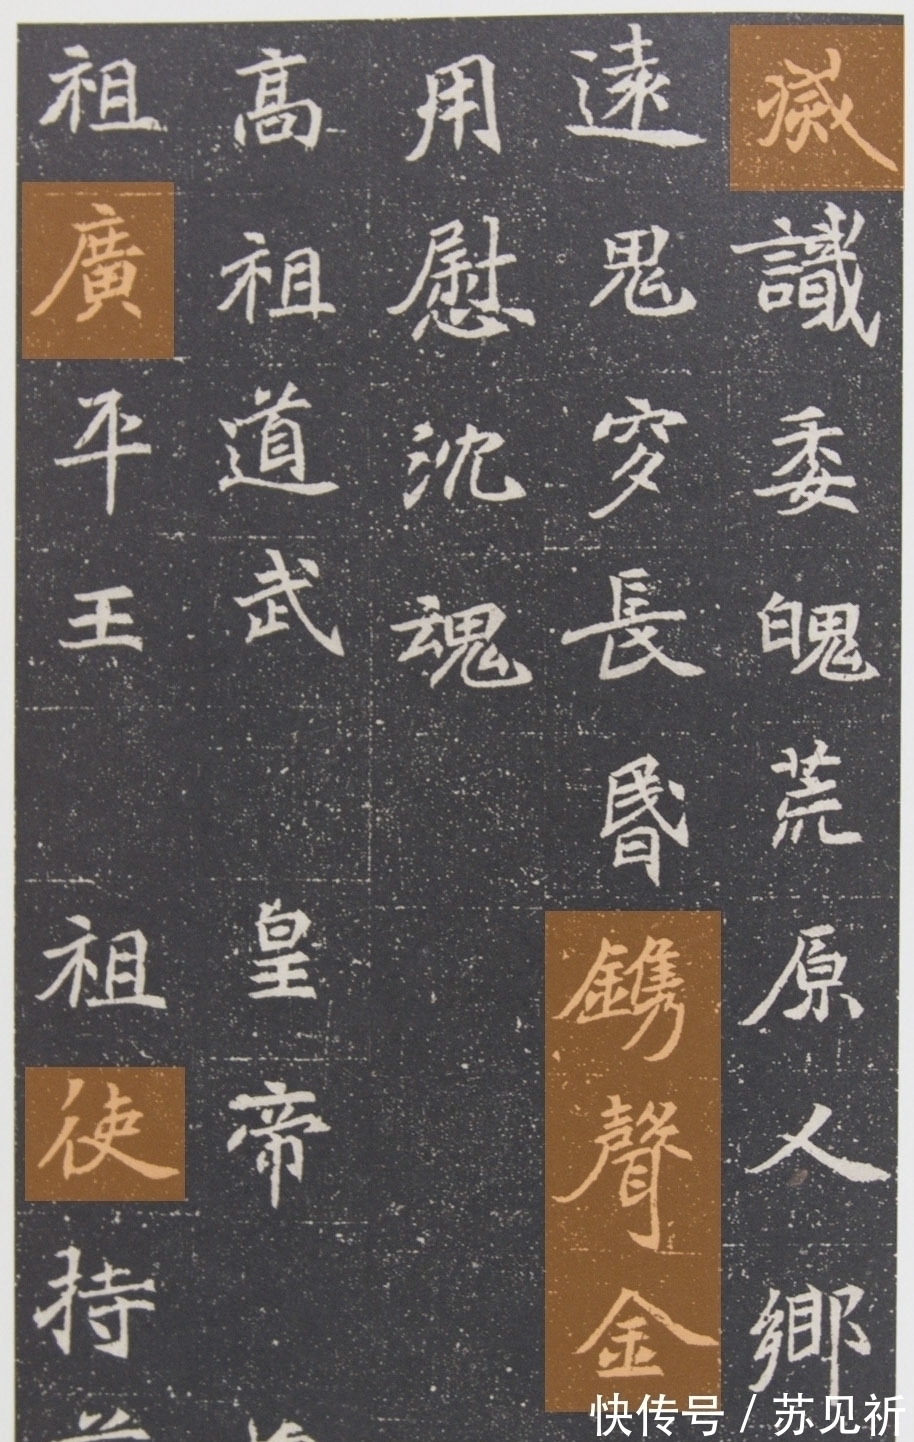 滅識委魄荒原人鄉
遠鬼穸長昬鐫聲金
用慰沈魂
高祖道武皇帝
祖廣平王祖使持
快传号 / 苏见祈